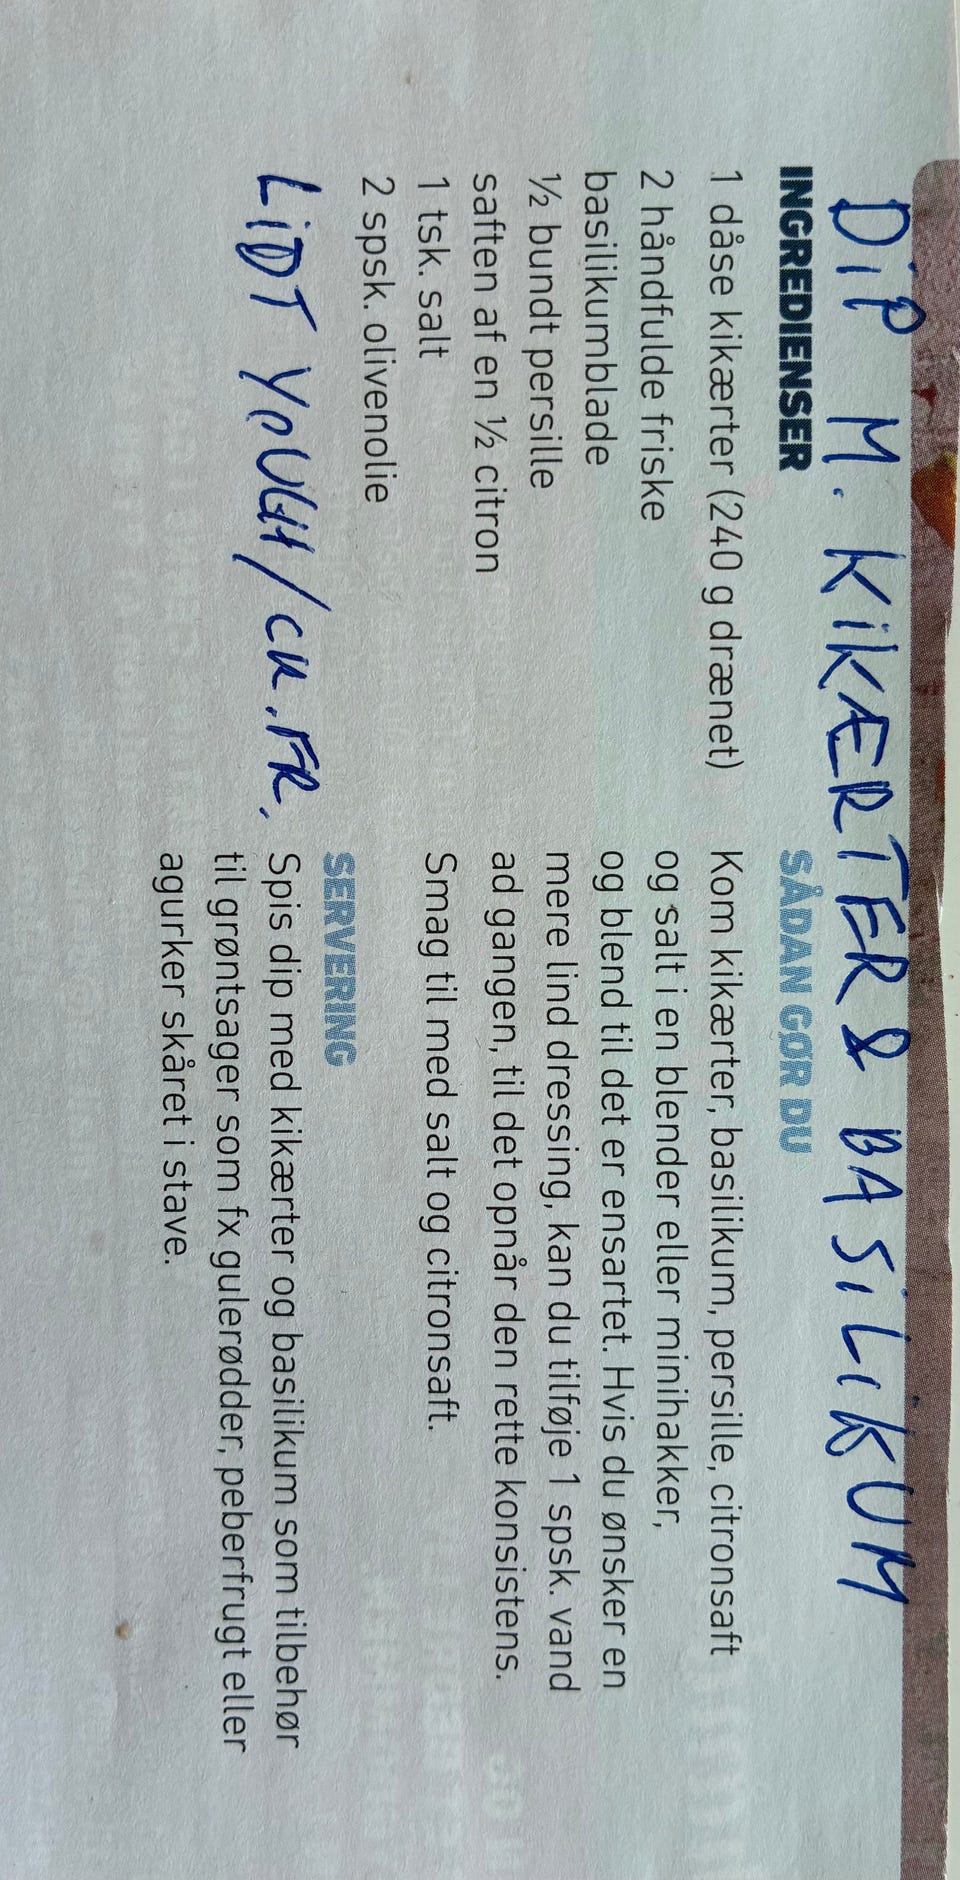 DIP M. KIKÆRTER & BASILIKUM
INGREDIENSER
1 dåse kikærter (240 g drænet)
2 håndfulde friske
basilikumblade
½ bundt persille
saften af en ½ citron
1 tsk. salt
2 spsk. olivenolie
LIDT YOUGH/CR.FR.
SÅDAN GØR DU
Kom kikærter, basilikum, persille, citronsaft
og salt i en blender eller minihakker,
og blend til det er ensartet. Hvis du ønsker en
mere lind dressing, kan du tilføje 1 spsk. vand
ad gangen, til det opnår den rette konsistens.
Smag til med salt og citronsaft.
SERVERING
Spis dip med kikærter og basilikum som tilbehør
til grøntsager som fx gulerødder, peberfrugt eller
agurker skåret i stave.